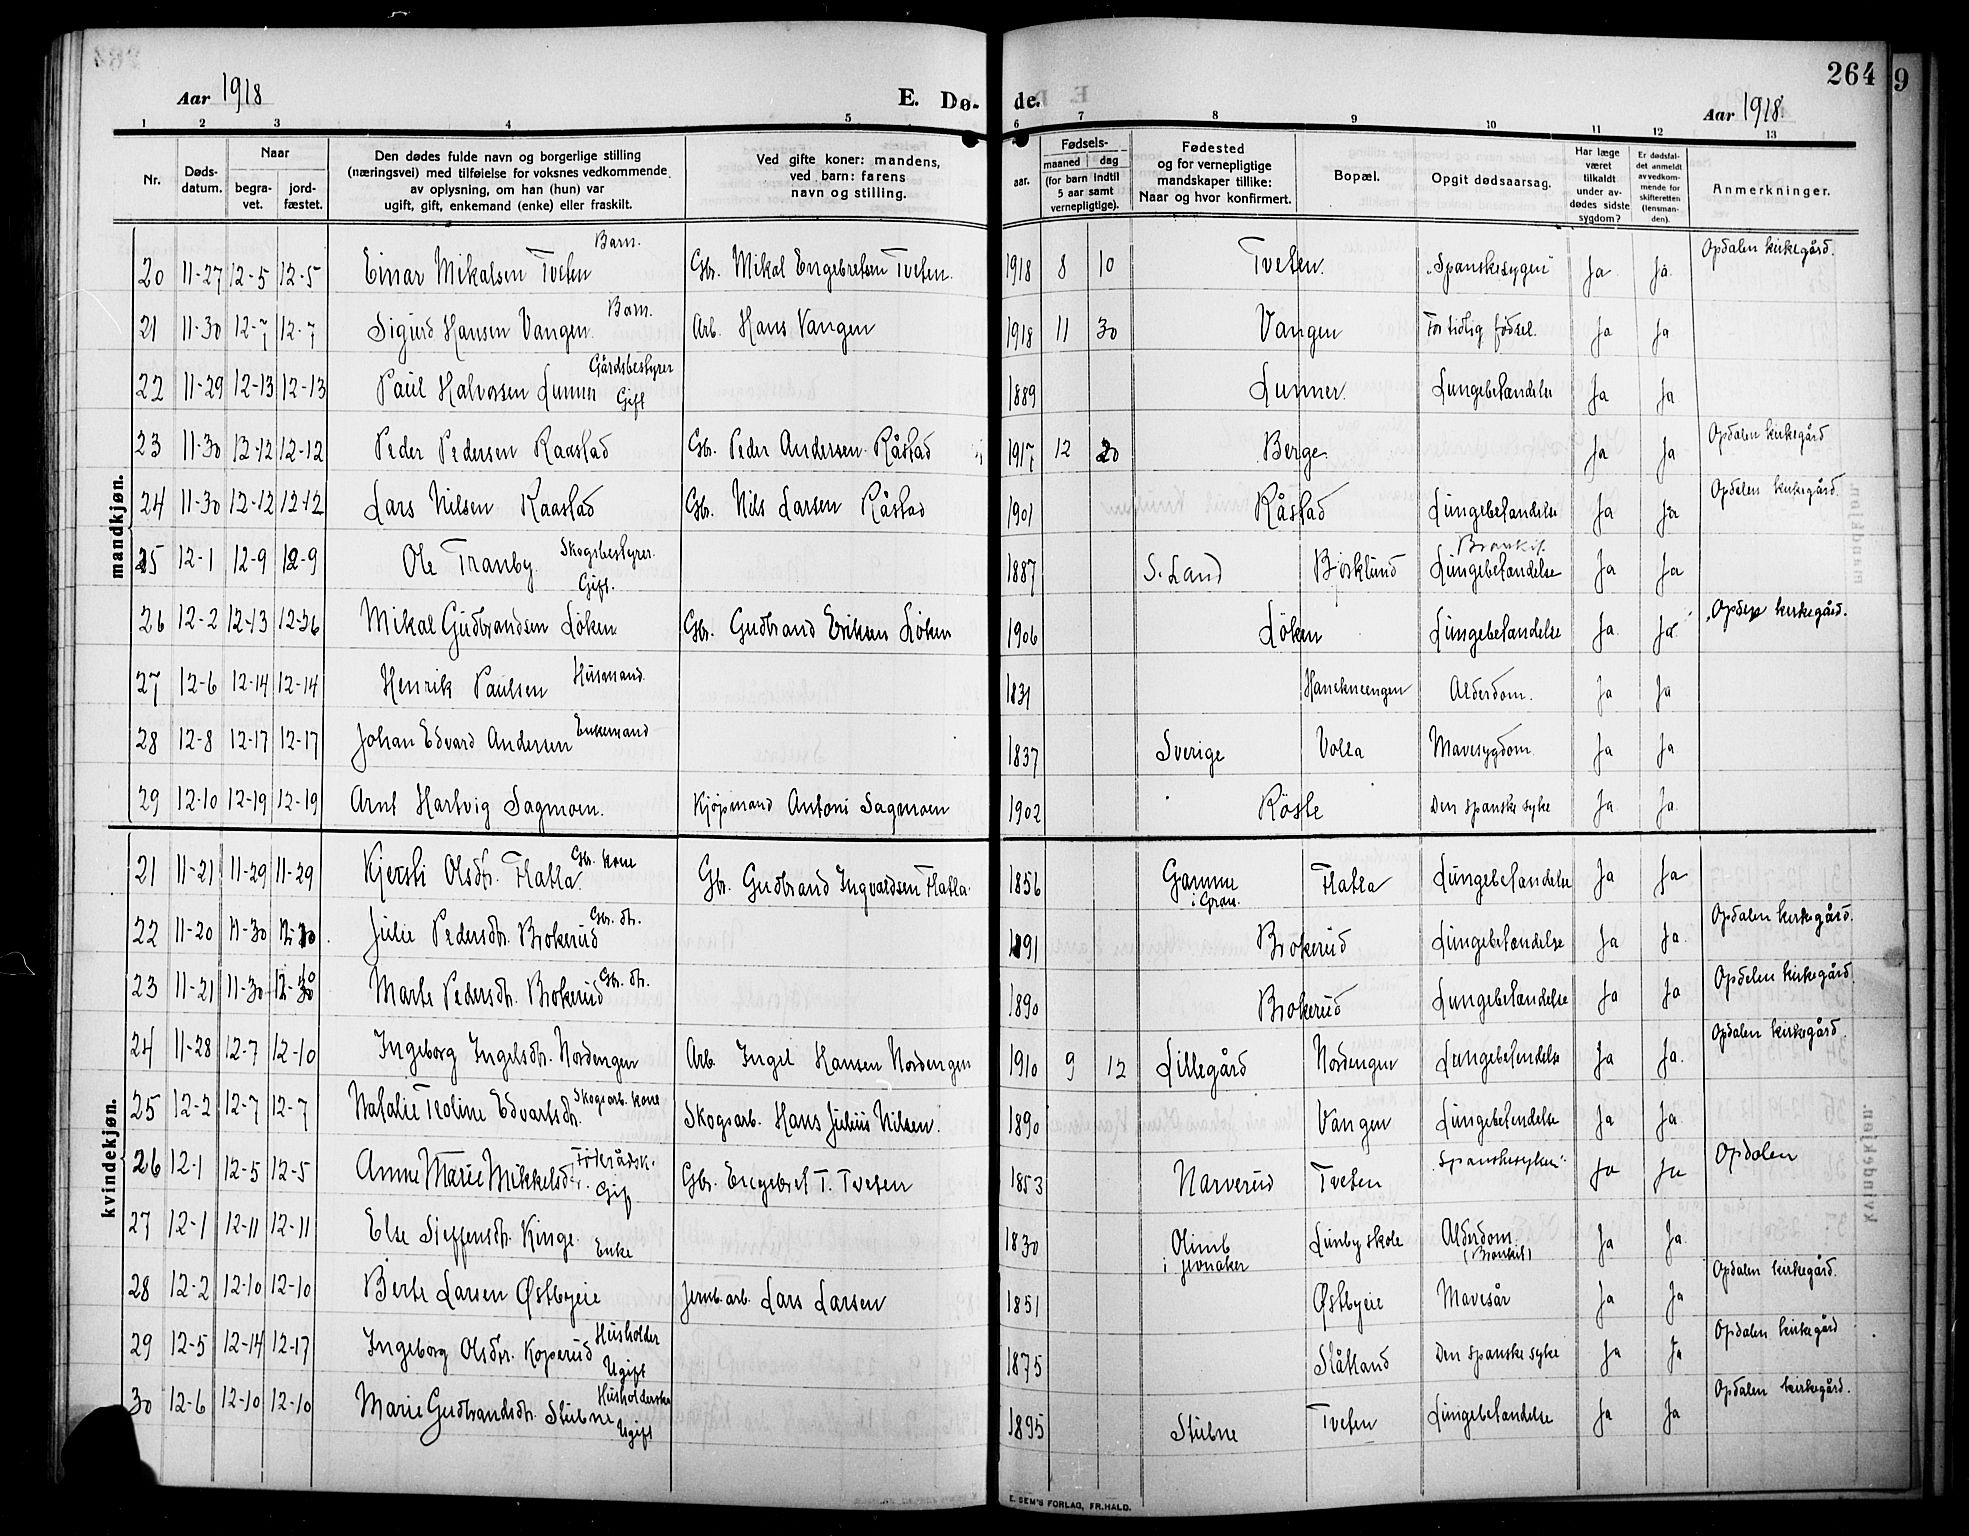 264
9
Aar 1918
E. Dø- de.
Aar 1918
1 2 3 4 5 6 7 8 9 10 11 12 13
Nr.
Døds-
datum.
Naar
begra-
vet.
jord-
fæstet.
Den dødes fulde navn og borgerlige stilling
(næringsvei) med tilføielse for voksnes vedkommende
av oplysning, om han (hun) var
ugift, gift, enkemand (enke) eller fraskilt.
Ved gifte koner: mandens,
ved barn: farens
navn og stilling.
Fødsels-
aar. maaned dag
(for barn indtil
5 aar samt
vernepligtige).
Fødested
og for vernepligtige
mandskaper tillike:
Naar og hvor konfirmert.
Bopæl.
Opgit dødsaarsag.
Har læge
været
tilkaldt
under av-
dødes sidste
sygdom?
Er dødsfal-
det anmeldt
av vedkom-
mende for
skifteretten
(lensman-
den).
Anmerkninger.
mandkjøn.
20 11-27 12-5 12-5 Einar Mikalsen Tveten Barn. Gbr. Mikal Engebretsen Tveten. 1918 8 10 Tveten. "Spanskesygen" Ja Ja Opdalen kirkegård.
21 11-30 12-7 12-7 Sigurd Hansen Vangen. Barn. Arb. Hans Vangen 1918 11 30 Vangen For tidlig fødsel. Ja Ja
22 11-29 12-13 12-13 Paul Halvorsen Lunner Gårdsbestyrer Gift 1889 Lunner. Lungebetændelse Ja Ja
23 11-30 12-12 12-12 Peder Pedersen Raastad Gbr. Peder Andersen Råstad 1917 12 20 Berge. Ja Ja Opdalen kirkegård
24 11-30 12-12 12-12 Lars Nilsen Raastad Gbr. Nils Larsen Råstad 1901 Råstad Lungebetændelse Ja Ja Opdalen kirkegård.
25 12-1 12-9 12-9 Ole Tranby. Skogsbestyrer. Gift. 1887 S. Land Bjørklund Bronkit. Lungebetændelse Ja Ja
26 12-2 12-13 12-26 Mikal Gudbrandsen Løken Gbr. Gudbrand Eriksen Løken 1906 Løken Lungebetændelse Ja Ja kirkegård.
27 12-6 12-14 12-14 Henrik Paulsen Husmand. 1831 Hanekneengen Alderdom. Ja Ja
28 12-8 12-17 12-17 Johan Edvard Andersen Enkemand 1837 Sverige Volla Mavesygdom. Ja Ja
29 12-10 12-19 12-19 Arnt Hartvig Sagmoen. Kjøpmand Antoni Sagmoen 1902 Røste Den spanske syke Ja Ja
kvindekjøn.
21 11-21 11-29 11-29 Kjersti Olsdtr. Flatla. Gbr. kone Gbr. Gudbrand Ingvaldsen Flatla. 1856 Gamme i Gran. Flatla Lungebetændelse Ja Ja
22 11-20 11-30 12-10 Julie Pedersdtr. Brokerud Gbr. dtr. 1891 Brokerud Lungebetændelse Ja Ja. Opdalen kirkegård.
23 11-21 11-30 12-10 Marte Pedersdtr. Brokerud Gbr. dtr. 1890 Brokerud Lungebetændelse Ja Ja Opdalen kirkegård.
24 11-28 12-7 12-10 Ingeborg Ingelsdtr. Nordengen Arb. Ingel Hansen Nordengen 1910 9 12 Lillegård Nordengen Lungebetændelse Ja Ja. Opdalen kirkegård
25 12-2 12-7 12-7 Natalie Teoline Edvartsdtr. Skogsarb. kone Skogsarb. Hans Julius Nilsen. 1890 Vangen Lungebetændelse Ja Ja.
26 12-1 12-5 12-5 Anne Marie Mikkelsdtr. Føderådsk. Gift Gbr. Engebret T. Tveten 1853 Narverud Tveten Spanskesyken". Ja Ja Opdalen
27 12-1 12-11 12-11 Else Steffensdtr. Kinge. Enke 1830 Olimb i Jevnaker Lunby skole Alderdom (Bronkit) Ja Ja
28 12-2 12-10 12-10 Berte Larsen Østbyeie Jernb. arb. Lars Larsen 1851 Østbyeie Mavesår Ja Ja Opdalen kirkegård.
29 12-5 12-14 12-17 Ingeborg Olsdtr. Koperud Husholder Ugift 1875 Slåtland Den spanske syke Ja Ja Opdalen kirkegård
30 12-6 12-10 12-10 Marie Gudbrandsdtr. Stubne Husholderske Ugift 1895 Stubne Tveten Lungebetændelse Ja Ja Opdalen kirkegård.
E. SEM'S FORLAG, FR.HALD.